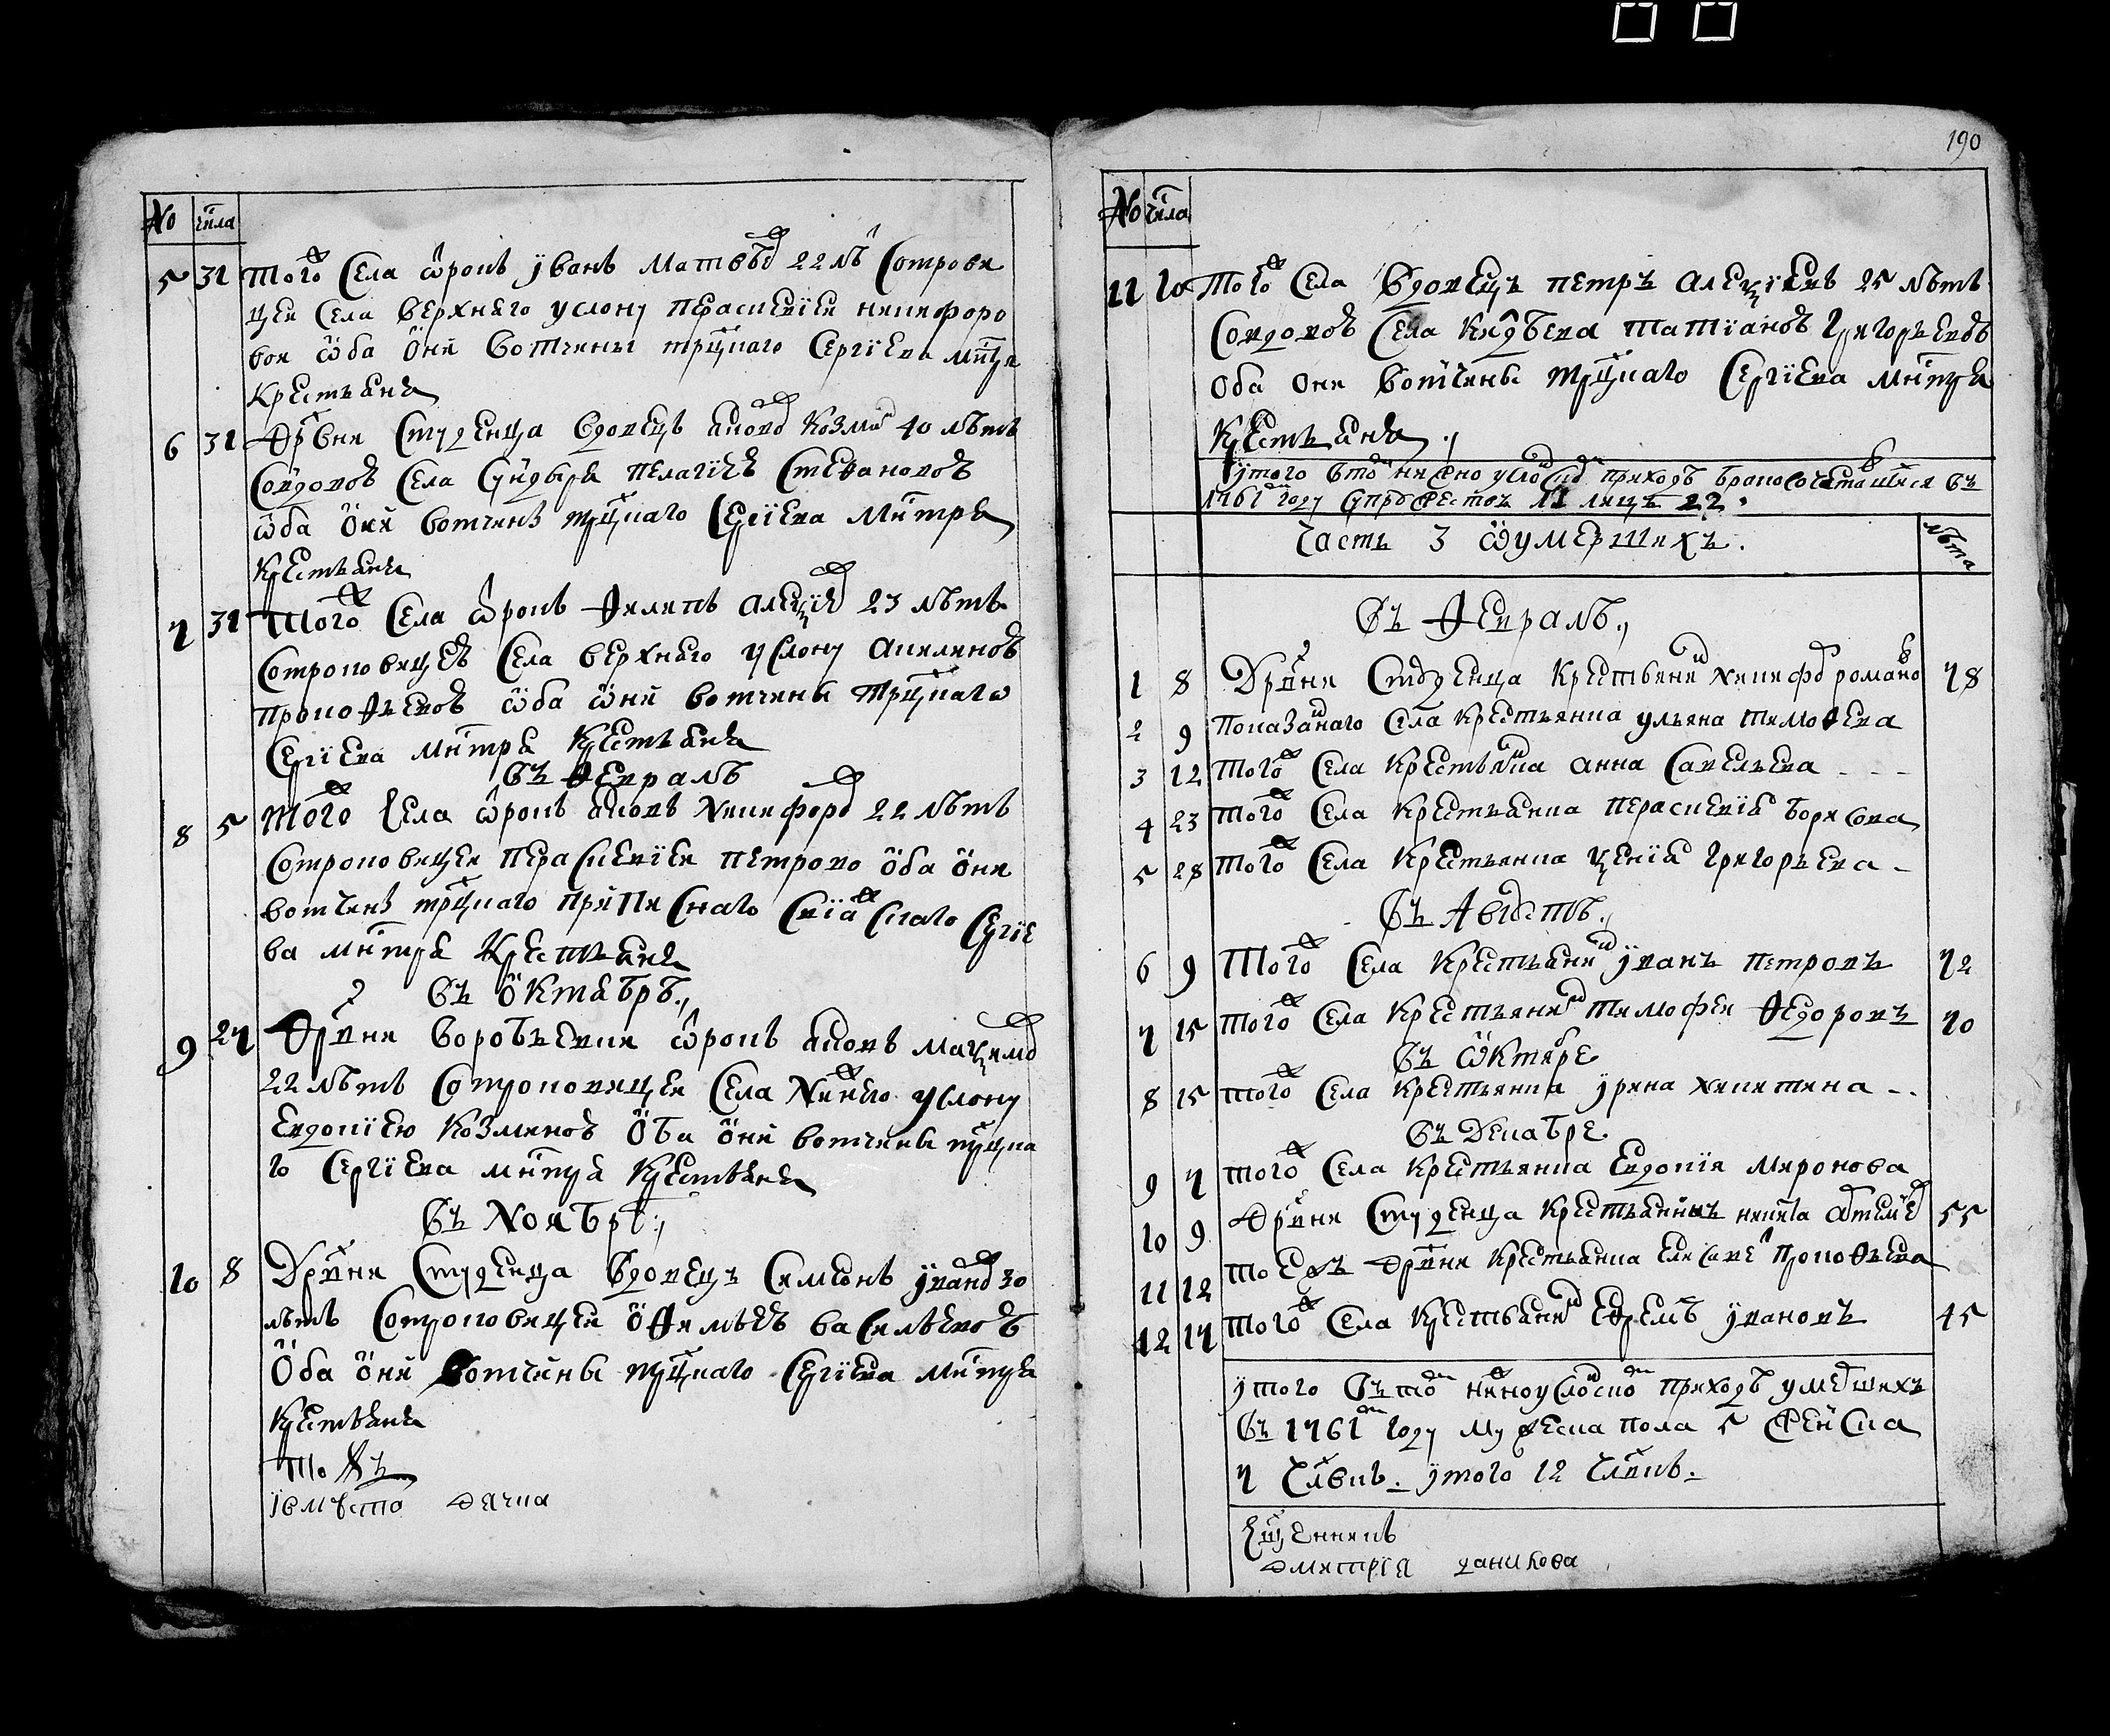 No чiсла
5 31 Того ж села отрокъ Иванъ Матвѣевъ 22 лѣ сотрокови
цеи села Верхнего Услону Параскевiеи Никифоро
вои оба они вотчины Троицкаго Сергiева мнтря
крестьяня
6 31 Дрвни Студенца вдовецъ Яковъ Козминъ 40 лѣтъ
со вдовою села Сундыря Пелагiею Стефановою
оба они вотчины Троицкаго Сергiева мнтря
крестьяня
7 31 Того ж села отрокъ Филипъ Алеѯiевъ 23 лѣтъ
сотроковицею села Верхняго Услону Акилиною
Прокофьевою оба они вотчины Троицкаго
Сергiева мнтря крестьяня
Въ февралѣ
8 5 Того ж села отрокъ Яковъ Никифоровъ 22 лѣтъ
сотроковицеи Параскевiеи Петрово оба они
вотчины Троицкаго приписнаго Свiяжскаго Сергiе
ва мнтря крестьяня
Въ октябрѣ
9 27 Дрвни Воробьевки отрокъ Яковъ Маѯимовъ
22 лѣтъ сотроковицеи села Нижняго Услону
Евдокiею Козминою оба они вотчины Троицка
го Сергiева мнтря крестьяня
Въ ноябрѣ
10 8 Дрвни Студенца вдовецъ Симеонъ Ивановъ 30
лѣтъ сотроковицеи Офимьею Васильевою
оба они вотчины Троицкаго Сергiева мнтря
крестьяня
То жъ
iвмѣсто дячка
190
No чiсла
11 10 Того ж села вдовецъ Петръ Алеѯiевъ 25 лѣтъ
со вдовою села Татiаною Григорьевою
оба они вотчины Троицкаго Сергiева мнтря
крестьяня
итого въ том нижно услонском приходѣ бракосочетавшихся въ
1761 году супружествъ 11 лицъ 22
Часть 3 о умершихъ. лѣта
Въ февралѣ
1 8 Дрвни Студенца крестьянин Никифоръ Романовъ 78
2 9 Показанаго села крестьянка Ульяна Тимофева
3 12 Того ж села крестьянка Анна Савельева
4 23 Того ж села крестьянка Параскевiя Борисова
5 28 Того ж села крестьянка Ѯенiя Григорьева
Въ августѣ
6 9 Того ж села крестьянин Иванъ Петровъ 72
7 15 Того ж села крестьянин Тимофеи Федоровъ 70
Въ октябре
8 15 Того ж села крестьянка Ирина Никитина
Въ декабре
9 7 Того ж села крестьянка Евдокiя Миронова
10 9 Дрвни Студенца крестьянинъ Никита Артемiев 55
11 12 Тоежъ дрвни крестьянка Елисавет Прокофьева
12 17 Того ж села крестьянин Ефремъ Ивановъ 45
итого въ том нижноуслонском приходѣ умершихъ
въ 1761 году мужеска пола 5 женска
7 члвкъ. итого 12 члвкъ.
Сщенникъ
Дмитрiя